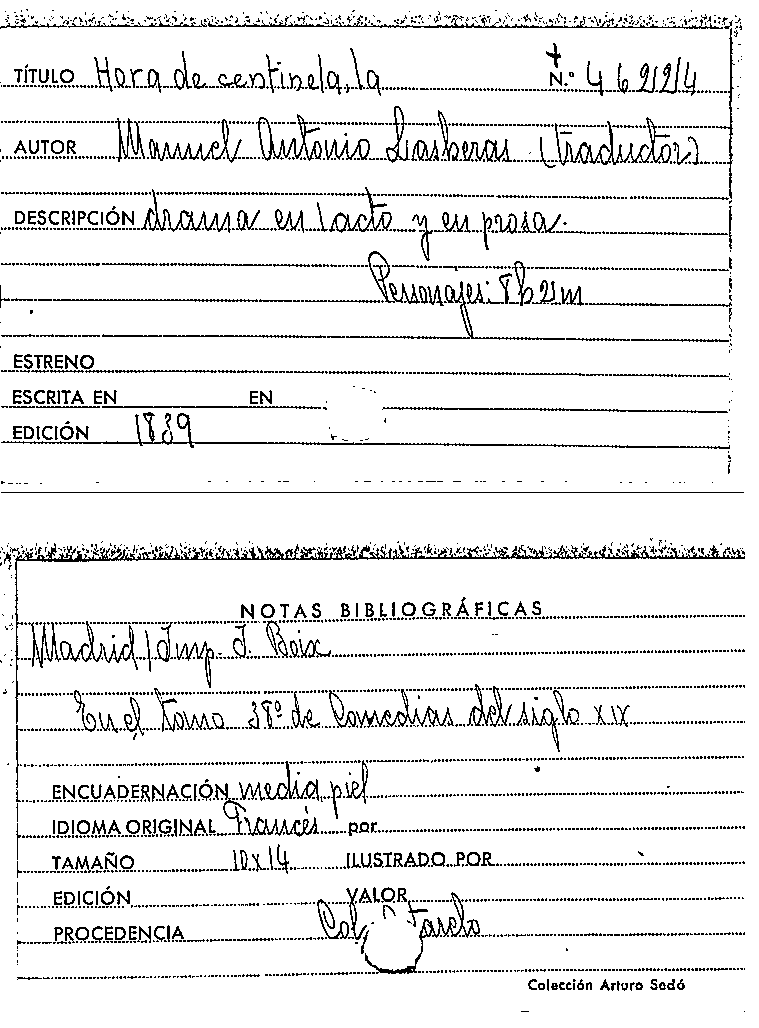 TÍTULO Hora de centinela, la N.º 46224
AUTOR Manuel Antonio Lasheras (traductor)
DESCRIPCIÓN drama en 1 acto y en prosa.
Personajes: 8h 2m
ESTRENO
ESCRITA EN EN
EDICIÓN 1839
NOTAS BIBLIOGRÁFICAS
Madrid / Imp. I. Boix
En el tomo 38º de Comedias del siglo XIX
ENCUADERNACIÓN media piel
IDIOMA ORIGINAL Francés por
TAMAÑO 10x14 ILUSTRADO POR
EDICIÓN VALOR
PROCEDENCIA Col.
Colección Arturo Sedó